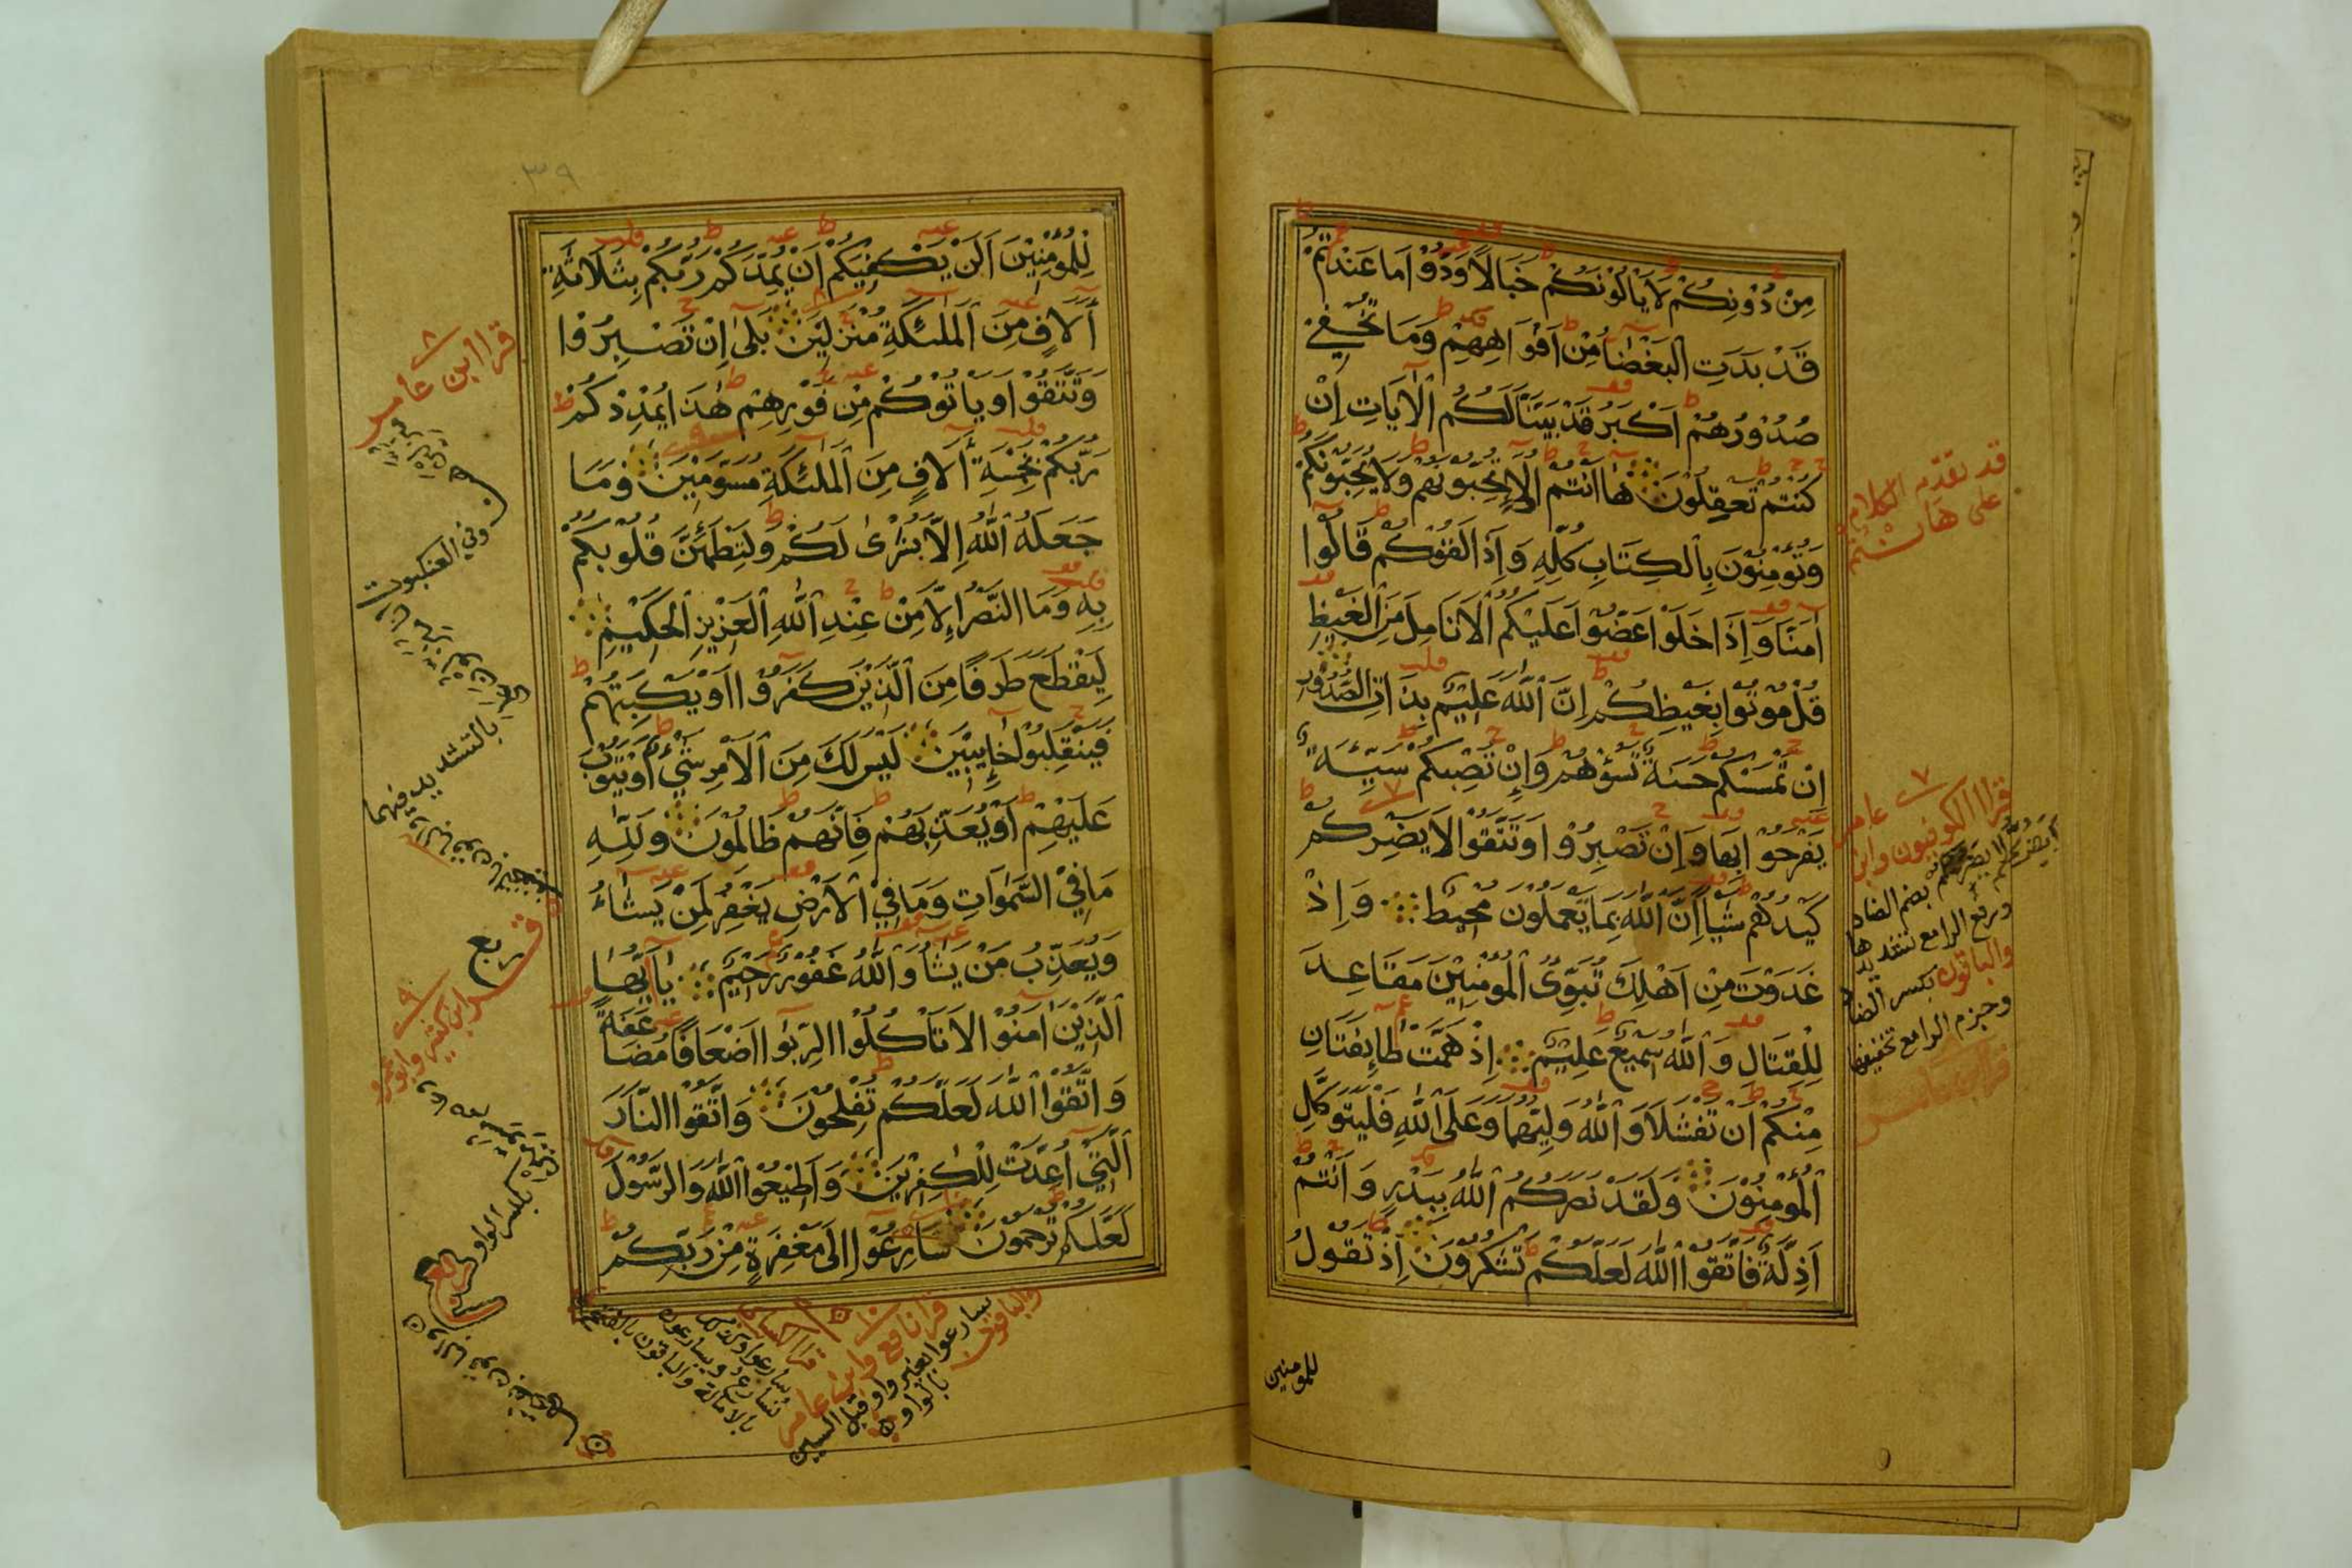 مِنْ دُوْنِكُمْ لَا يَالُوْنَكُمْ خَبَالًا وَدُّوْا مَا عَنْتُمْ
قَدْ بَدَتِ الْبَغْضَآ مِنْ اَفْوَاهِهِمْ وَمَا تُخْفِيْ
صُدُوْرُهُمْ اَكْبَرُ قَدْ بَيَّنَّا لَكُمُ الْاٰيَاتِ اِنْ
كُنْتُمْ تَعْقِلُوْنَ هٰا اَنْتُمْ اُولَاءِ تُحِبُّوْنَهُمْ وَلَا يُحِبُّوْنَكُمْ
وَتُؤْمِنُوْنَ بِالْكِتَابِ كُلِّهِ وَاِذَا لَقُوْكُمْ قَالُوْا
اٰمَنَّا وَاِذَا خَلَوْا عَضُّوْا عَلَيْكُمُ الْاَنَامِلَ مِنَ الْغَيْظِ
قُلْ مُوْتُوْا بِغَيْظِكُمْ اِنَّ اللّٰهَ عَلِيْمٌ بِذَاتِ الصُّدُوْرِ
اِنْ تَمْسَسْكُمْ حَسَنَةٌ تَسُؤْهُمْ وَاِنْ تُصِبْكُمْ سَيِّئَةٌ
يَفْرَحُوْا بِهَا وَاِنْ تَصْبِرُوْا وَتَتَّقُوْا لَا يَضِرْكُمْ
كَيْدُهُمْ شَيْئًا اِنَّ اللّٰهَ بِمَا يَعْمَلُوْنَ مُحِيْطٌ وَاِذْ
غَدَوْتَ مِنْ اَهْلِكَ تُبَوِّئُ الْمُؤْمِنِيْنَ مَقَاعِدَ
لِلْقِتَالِ وَاللّٰهُ سَمِيْعٌ عَلِيْمٌ اِذْ هَمَّتْ طَّائِفَتَانِ
مِنْكُمْ اَنْ تَفْشَلَا وَاللّٰهُ وَلِيُّهُمَا وَعَلَى اللّٰهِ فَلْيَتَوَكَّلِ
الْمُؤْمِنُوْنَ وَلَقَدْ نَصَرَكُمُ اللّٰهُ بِبَدْرٍ وَاَنْتُمْ
اَذِلَّةٌ فَاتَّقُوا اللّٰهَ لَعَلَّكُمْ تَشْكُرُوْنَ اِذْ تَقُوْلُ
للمومنين
قد تقدم الكلام
على هَاَنْتُمْ
قرا الكوفيون وابن عامر
لا يَضُرُّكُمْ بضم الضاد
ورفع الرا مع تشديدها
والباقون بكسر الضاد
وجزم الرا مع تخفيفها
٣٩
لِلْمُؤْمِنِيْنَ اَلَنْ يَّكْفِيَكُمْ اَنْ يُمِدَّكُمْ رَبُّكُمْ بِثَلَاثَةِ
اٰلَافٍ مِنَ الْمَلٰئِكَةِ مُنْزَلِيْنَ بَلٰى اِنْ تَصْبِرُوْا
وَتَتَّقُوْا وَيَاْتُوْكُمْ مِنْ فَوْرِهِمْ هٰذَا يُمْدِدْكُمْ
رَبُّكُمْ بِخَمْسَةِ اٰلَافٍ مِنَ الْمَلٰئِكَةِ مُسَوَّمِيْنَ وَمَا
جَعَلَهُ اللّٰهُ اِلَّا بُشْرٰى لَكُمْ وَلِتَطْمَئِنَّ قُلُوْبُكُمْ
بِهِ وَمَا النَّصْرُ اِلَّا مِنْ عِنْدِ اللّٰهِ الْعَزِيْزِ الْحَكِيْمِ
لِيَقْطَعَ طَرَفًا مِنَ الَّذِيْنَ كَفَرُوْا اَوْ يَكْبِتَهُمْ
فَيَنْقَلِبُوْا خَائِبِيْنَ لَيْسَ لَكَ مِنَ الْاَمْرِ شَيْءٌ اَوْ يَتُوْبَ
عَلَيْهِمْ اَوْ يُعَذِّبَهُمْ فَاِنَّهُمْ ظَالِمُوْنَ وَلِلّٰهِ
مَا فِي السَّمٰوَاتِ وَمَا فِي الْاَرْضِ يَغْفِرُ لِمَنْ يَشَاءُ
وَيُعَذِّبُ مَنْ يَشَآ وَاللّٰهُ غَفُوْرٌ رَحِيْمٌ يٰاَيُّهَا
الَّذِيْنَ اٰمَنُوْا لَا تَاْكُلُوا الرِّبٰوا اَضْعَافًا مُضَاعَفَةً
وَاتَّقُوا اللّٰهَ لَعَلَّكُمْ تُفْلِحُوْنَ وَاتَّقُوا النَّارَ
الَّتِيْ اُعِدَّتْ لِلْكٰفِرِيْنَ وَاَطِيْعُوا اللّٰهَ وَالرَّسُوْلَ
لَعَلَّكُمْ تُرْحَمُوْنَ سَارِعُوْا اِلٰى مَغْفِرَةٍ مِنْ رَبِّكُمْ
قرا ابن عامر
وفي العنكبوت
بالتشديد فيهما
والباقون بالتخفيف
ربع
قرا ابن كثير وابو عمرو
بكسر الواو
والباقون بفتحها
قرا نافع وابن عامر
سارعوا بغير واو قبل السين
والباقون
بالواو
قرا الكسائي
سارعوا وكذلك
نسارع ويسارعون
بالامالة والباقون بالفتح